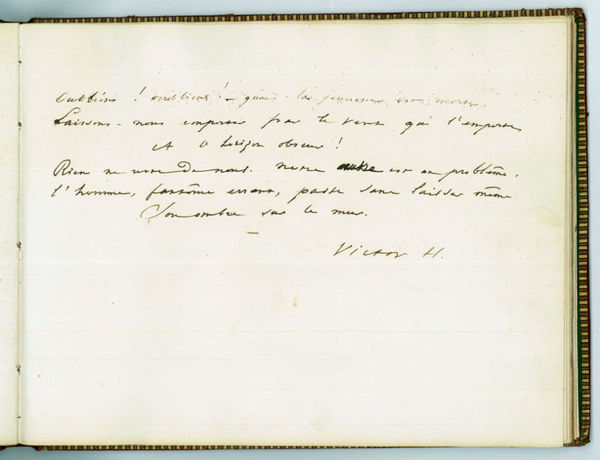 Oublions ! oublions ! – quand la jeunesse est morte,
Laissons-nous emporter par le vent qui l'emporte
A l'horizon obscur !
Rien ne reste de nous. Notre œuvre est un problème.
L'homme, fantôme errant, passe sans laisser même
Son ombre sur le mur.
Victor H.